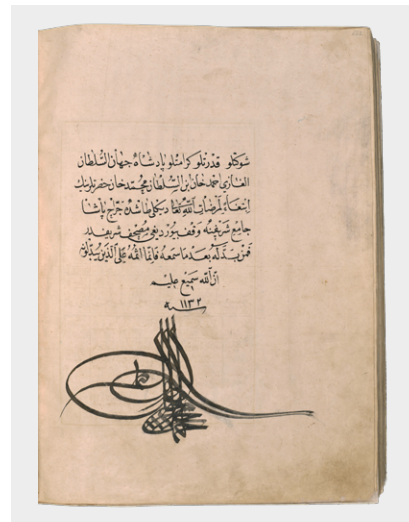 شوكتلو قدرتلو كرامتلو پادشاه جهان السلطان
الغازي احمد خان ابن السلطان محمد خان حضرتلرينك
ابتغاء لمرضات الله تعالى جراح پاشا
جامع شريفنه وقف بيوردیغی مصحف شريفدر
فمن بدله بعد ما سمعه فانما اثمه على الذين يبدلونه
ان الله سميع عليم
سنه ١١٣٢